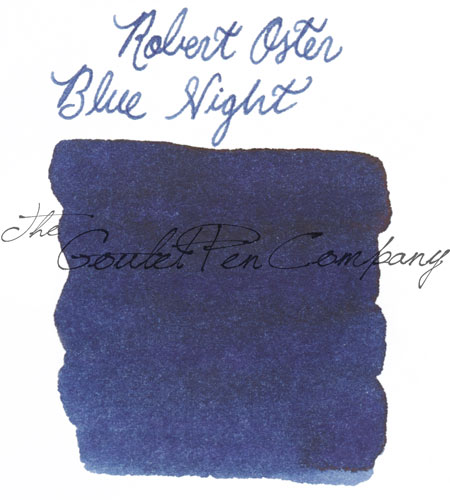 Robert Oster
Blue Night
The
Goulet Pen Company